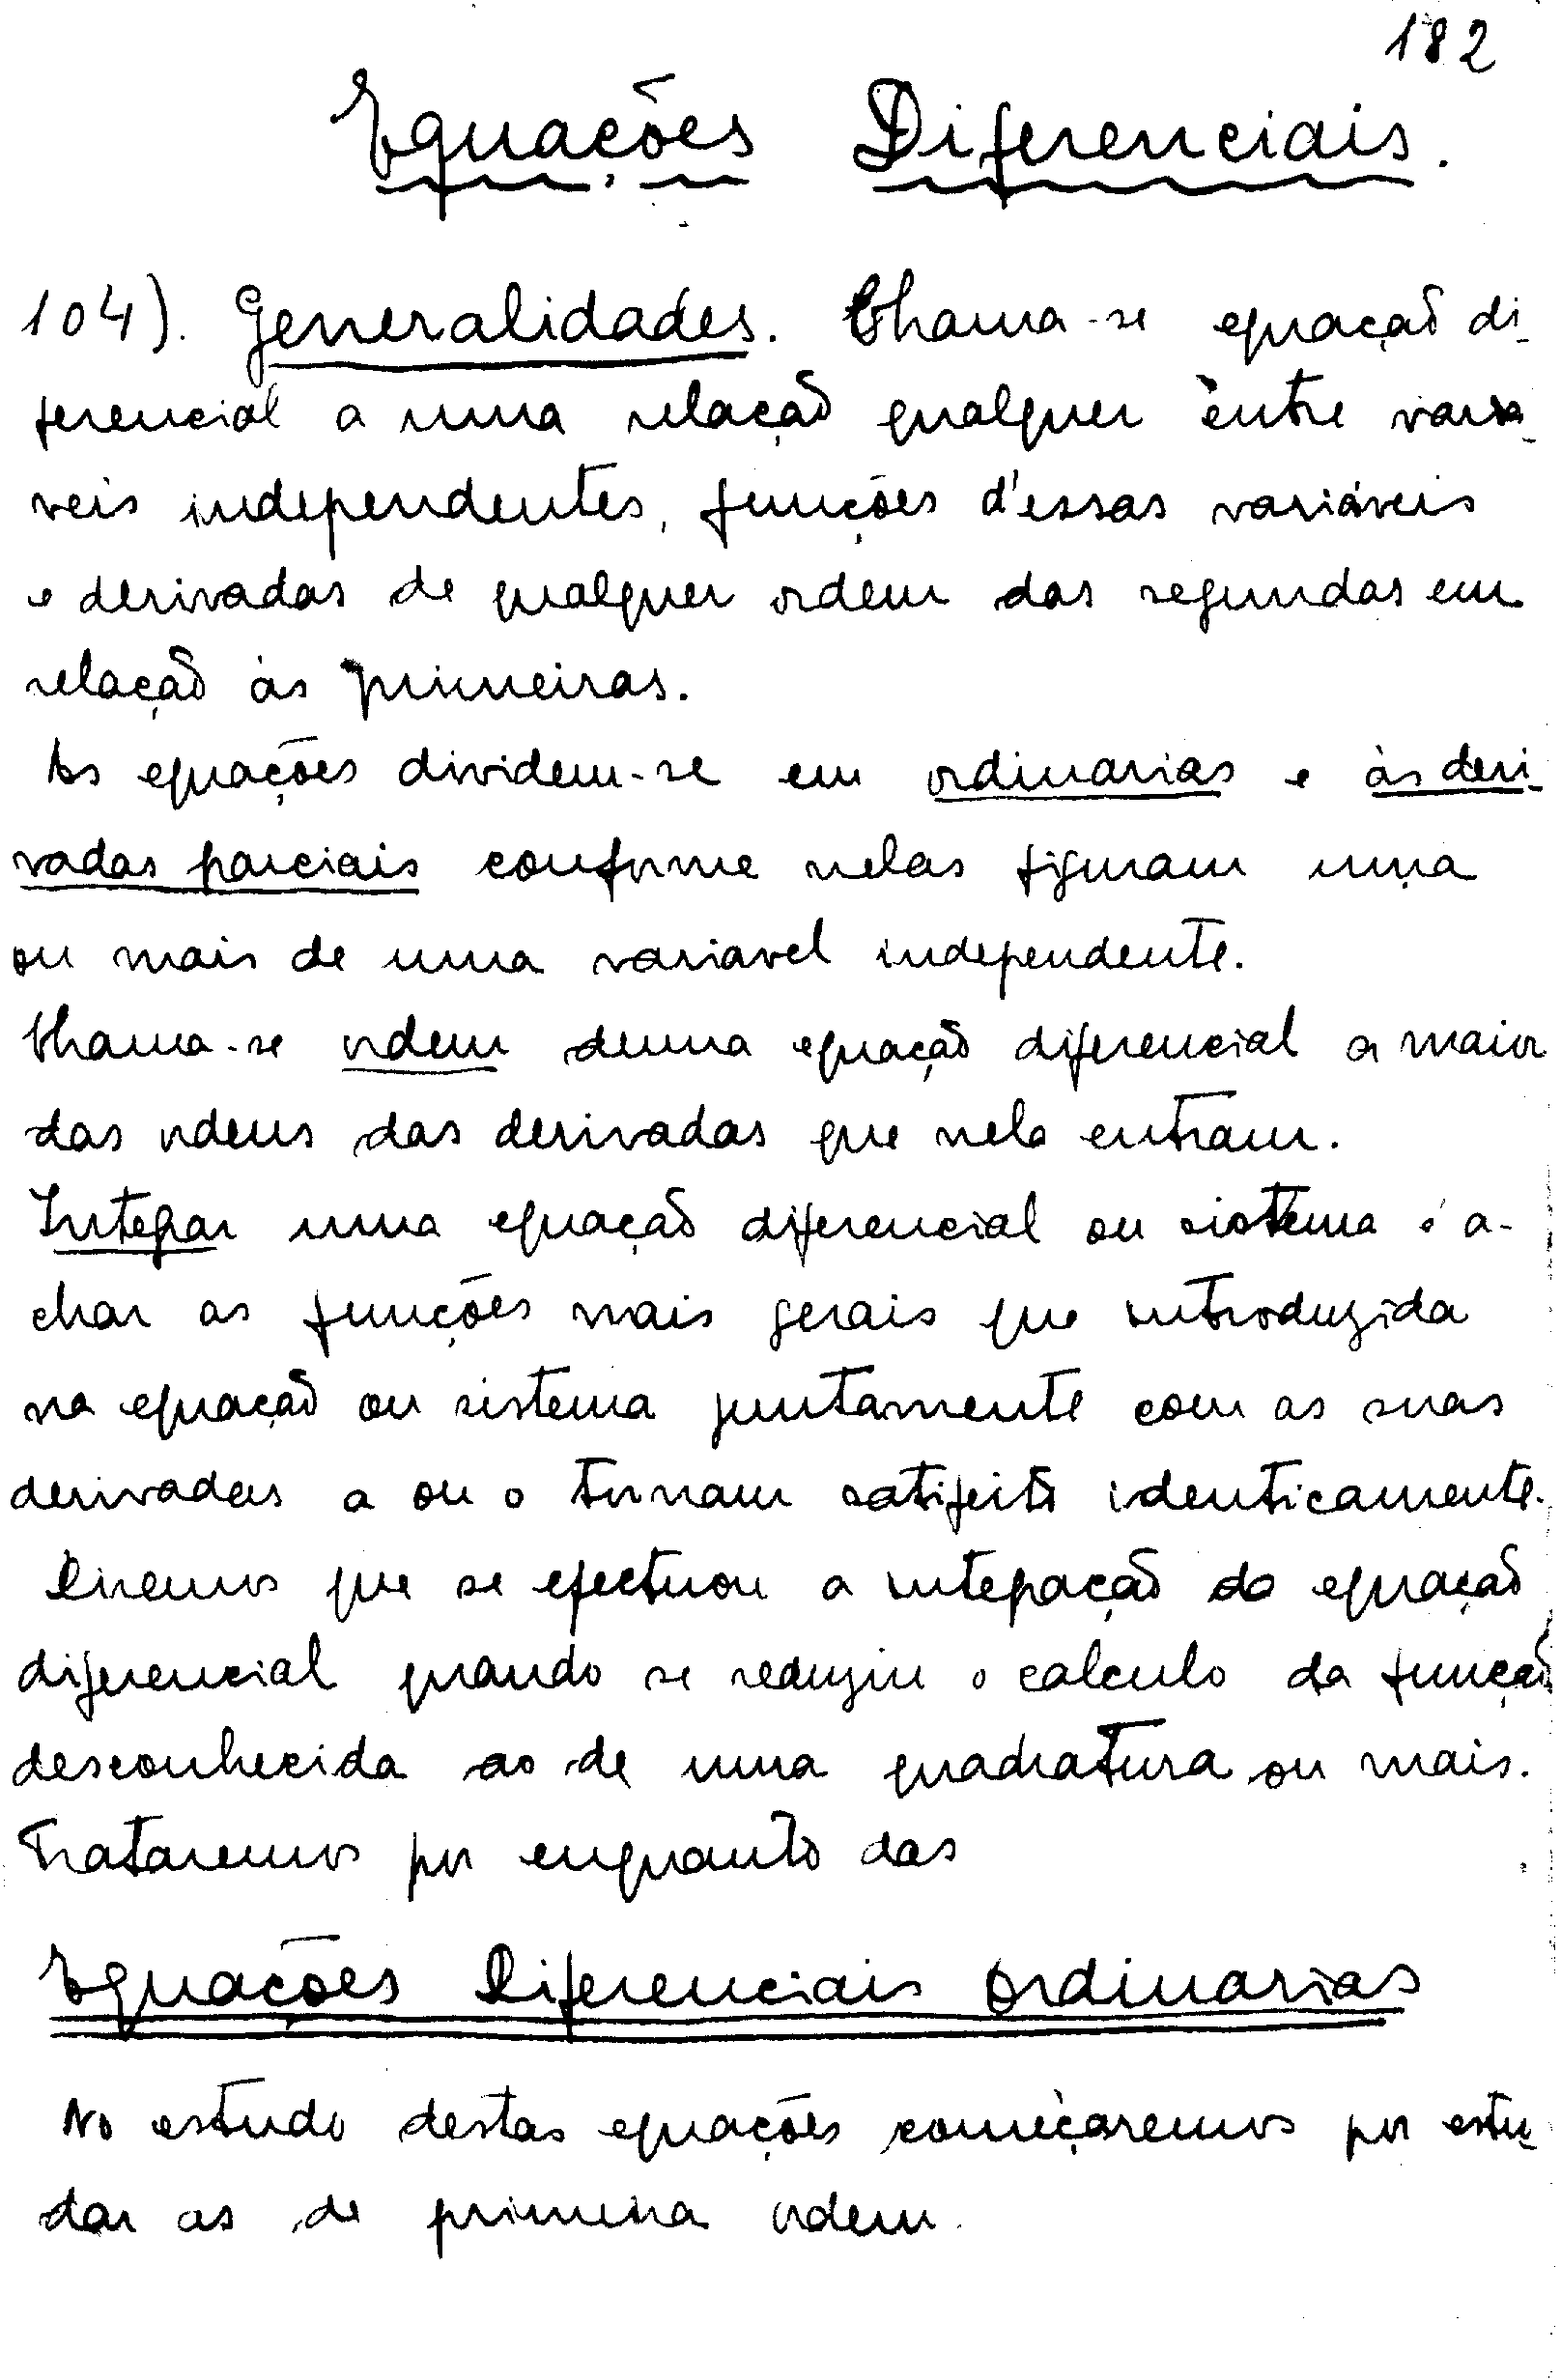 182
Equações Diferenciais.
104). Generalidades. Chama-se equação di-
ferencial a uma relação qualquer entre variá-
veis independentes, funções d'essas variáveis
e derivadas de qualquer ordem das segundas em
relação às primeiras.
As equações dividem-se em ordinarias e às deri-
vadas parciais conforme nelas figuram uma
ou mais de uma variavel independente.
Chama-se ordem duma equação diferencial a maior
das ordens das derivadas que nela entram.
Integrar uma equação diferencial ou sistema é a-
char as funções mais gerais que introduzida
na equação ou sistema juntamente com as suas
derivadas a ou o tornam satifeito identicamente.
Diremos que se efectuou a integração da equação
diferencial quando se reduziu o calculo da função
desconhecida ao de uma quadratura ou mais.
Trataremos por enquanto das
Equações Diferenciais Ordinarias
No estudo destas equações começaremos por estu-
dar as de primeira ordem.